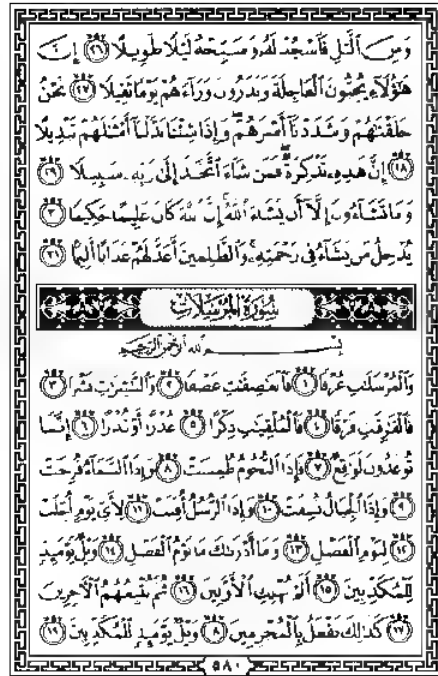 وَمِنَ ٱلَّيۡلِ فَٱسۡجُدۡ لَهُۥ وَسَبِّحۡهُ لَيۡلٗا طَوِيلًا ٢٦ إِنَّ
هَٰٓؤُلَآءِ يُحِبُّونَ ٱلۡعَاجِلَةَ وَيَذَرُونَ وَرَآءَهُمۡ يَوۡمٗا ثَقِيلٗا ٢٧ نَّحۡنُ
خَلَقۡنَٰهُمۡ وَشَدَدۡنَآ أَسۡرَهُمۡۖ وَإِذَا شِئۡنَا بَدَّلۡنَآ أَمۡثَٰلَهُمۡ تَبۡدِيلًا
٢٨ إِنَّ هَٰذِهِۦ تَذۡكِرَةٞۖ فَمَن شَآءَ ٱتَّخَذَ إِلَىٰ رَبِّهِۦ سَبِيلٗا ٢٩
وَمَا تَشَآءُونَ إِلَّآ أَن يَشَآءَ ٱللَّهُۚ إِنَّ ٱللَّهَ كَانَ عَلِيمًا حَكِيمٗا ٣٠
يُدۡخِلُ مَن يَشَآءُ فِي رَحۡمَتِهِۦۚ وَٱلظَّٰلِمِينَ أَعَدَّ لَهُمۡ عَذَابًا أَلِيمَۢا ٣١
سُورَةُ المُرۡسَلَاتِ
بِسۡمِ ٱللَّهِ ٱلرَّحۡمَٰنِ ٱلرَّحِيمِ
وَٱلۡمُرۡسَلَٰتِ عُرۡفٗا ١ فَٱلۡعَٰصِفَٰتِ عَصۡفٗا ٢ وَٱلنَّٰشِرَٰتِ نَشۡرٗا ٣
فَٱلۡفَٰرِقَٰتِ فَرۡقٗا ٤ فَٱلۡمُلۡقِيَٰتِ ذِكۡرًا ٥ عُذۡرًا أَوۡ نُذۡرًا ٦ إِنَّمَا
تُوعَدُونَ لَوَٰقِعٞ ٧ فَإِذَا ٱلنُّجُومُ طُمِسَتۡ ٨ وَإِذَا ٱلسَّمَآءُ فُرِجَتۡ
٩ وَإِذَا ٱلۡجِبَالُ نُسِفَتۡ ١٠ وَإِذَا ٱلرُّسُلُ أُقِّتَتۡ ١١ لِأَيِّ يَوۡمٍ أُجِّلَتۡ
١٢ لِيَوۡمِ ٱلۡفَصۡلِ ١٣ وَمَآ أَدۡرَىٰكَ مَا يَوۡمُ ٱلۡفَصۡلِ ١٤ وَيۡلٞ يَوۡمَئِذٖ
لِّلۡمُكَذِّبِينَ ١٥ أَلَمۡ نُهۡلِكِ ٱلۡأَوَّلِينَ ١٦ ثُمَّ نُتۡبِعُهُمُ ٱلۡأٓخِرِينَ
١٧ كَذَٰلِكَ نَفۡعَلُ بِٱلۡمُجۡرِمِينَ ١٨ وَيۡلٞ يَوۡمَئِذٖ لِّلۡمُكَذِّبِينَ ١٩
٥٨٠